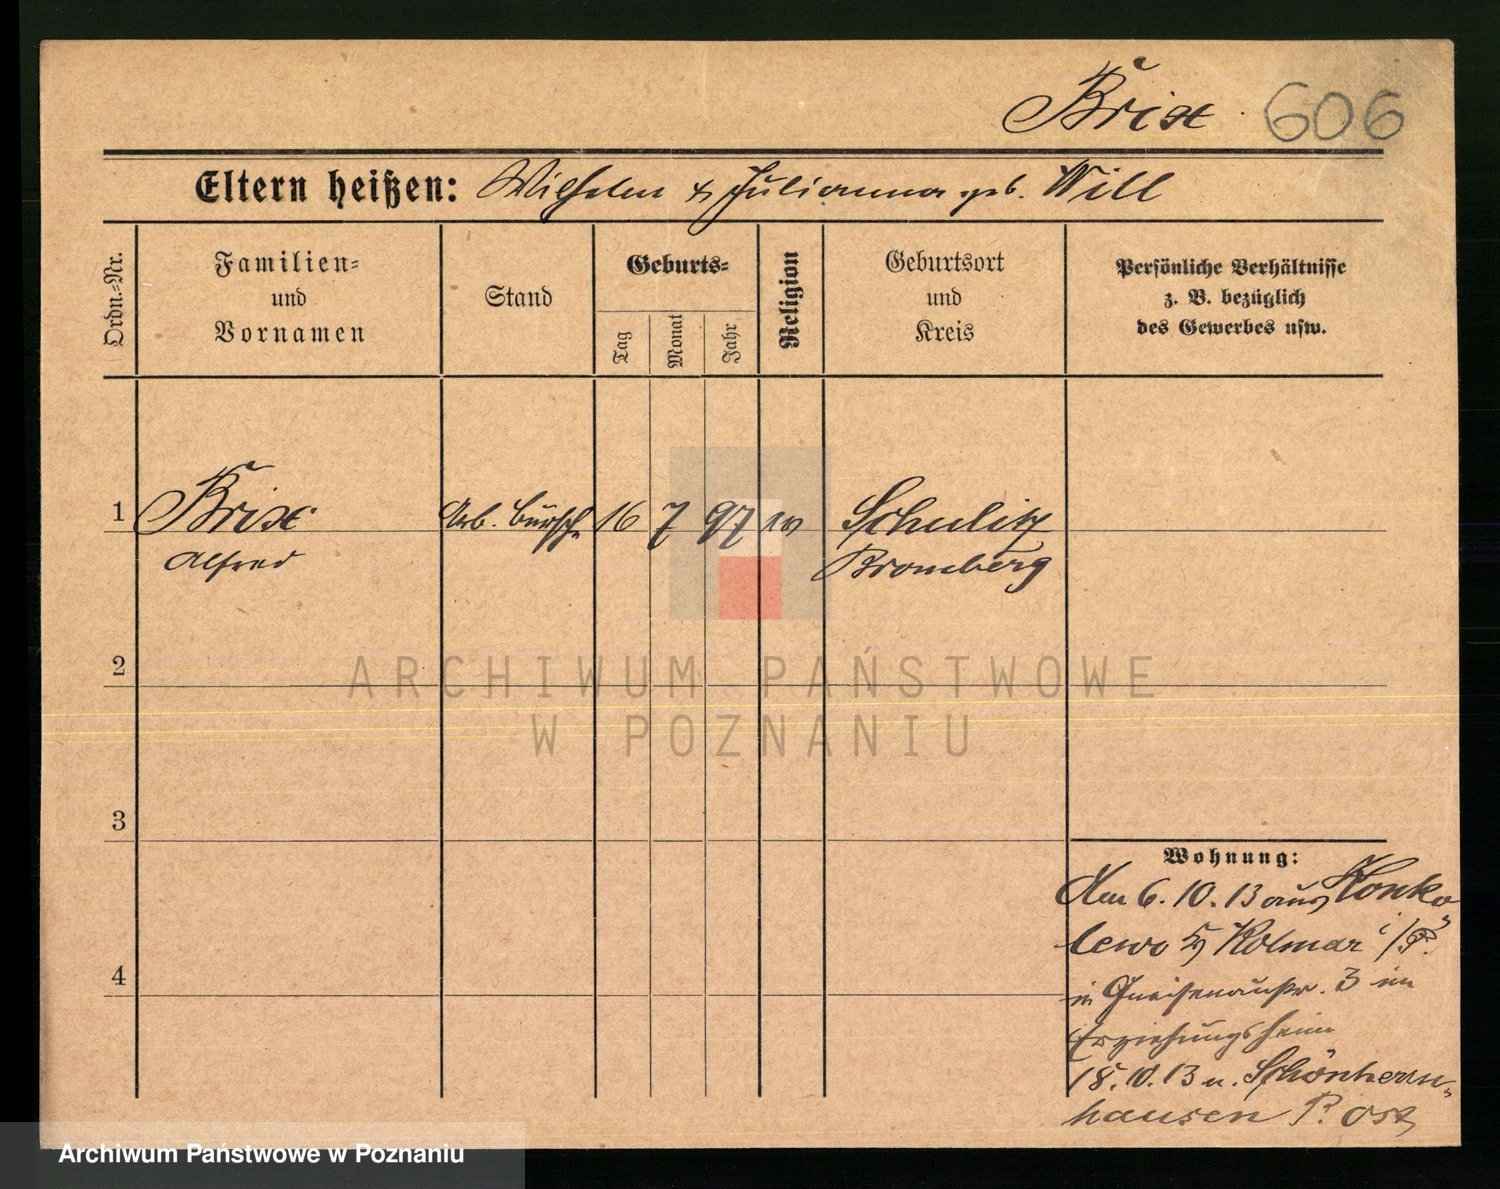 Brix 606
Eltern heißen: Wilhelm & Julianna geb. Will
Ordn.-Nr.
Familien-
und
Vornamen
Stand
Geburts-
Tag
Monat
Jahr
Religion
Geburtsort
und
Kreis
Persönliche Verhältnisse
z. B. bezüglich
des Gewerbes usw.
1 Brix Arb. bursch. 16 7 97 ev Schulitz
Alfred Bromberg
2
3
4
Wohnung:
Am 6.10.13 aus Konko-
lewo Kolmar i/P.
in Gneisenaustr. 3 im
Erziehungsheim
18.10.13 n. Schönherrn-
hausen P. Ost
ARCHIWUM PAŃSTWOWE
W POZNANIU
Archiwum Państwowe w Poznaniu